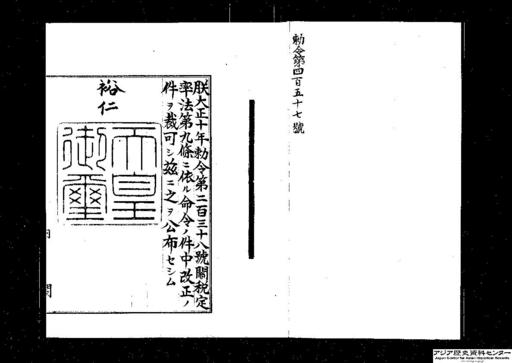 勅令第四百五十七號
朕大正十年勅令第二百三十八號關税定
率法第九條ニ依ル命令ノ件中改正ノ
件ヲ裁可シ茲ニ之ヲ公布セシム
裕仁
天皇
御璽
内
閣
アジア歴史資料センター
Japan Center for Asian Historical Records